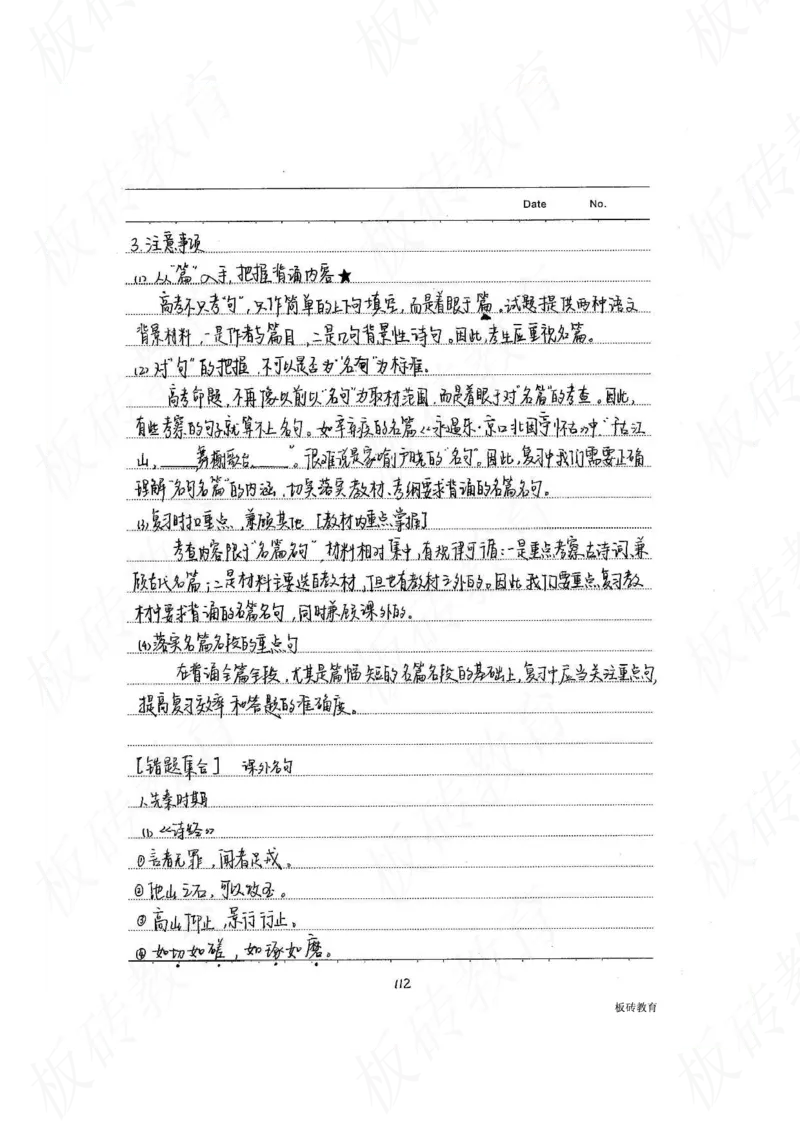 Date No.
3.注意事项
(1) 从"篇"入手,把握背诵内容★
高考不只考"句",只作简单的上下句填空,而是着眼于篇。试题提供两种语文
背景材料,一是作者与篇目,二是几句背景性诗句。因此,考生应重视名篇。
(2) 对"句"的把握,不可以是否为"名句"为标准。
高考命题,不再像以前以"名句"为取材范围,而是着眼于对"名篇"的考查。因此,
有些考察的句子就算不上名句。如辛弃疾的名篇《永遇乐·京口北固亭怀古》中"千古江
山,____舞榭歌台____"。很难说是家喻户晓的"名句"。因此,复习中我们需要正确
理解"名句名篇"的内涵,切实落实教材、考纲要求背诵的名篇名句。
(3)复习时扣重点、兼顾其他 [教材内重点掌握]
考查内容限于"名篇名句",材料相对集中,有规律可循:一是重点考察古诗词、兼
顾古代名篇;二是材料主要选自教材,但也有教材之外的。因此我们要重点复习教
材中要求背诵的名篇名句,同时兼顾课外的。
(4)落实名篇名段的重点句
在背诵全篇全段,尤其是篇幅短的名篇名段的基础上,复习中应当关注重点句,
提高复习效率和答题的准确度。
[错题集合] 课外名句
1.先秦时期
(1) 《诗经》
①言者无罪,闻者足戒。
②他山之石,可以攻玉。
③高山仰止,景行行止。
④如切如磋,如琢如磨。
112
板砖教育